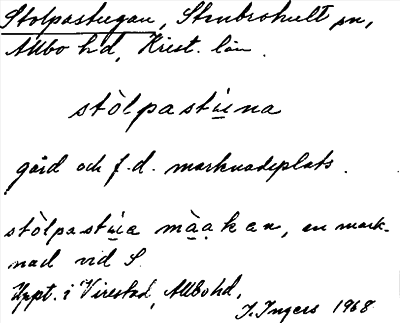 Stolpastugan, Stenbrohult sn,
Allbo hd, Krist. län.
stòlpastu̲na
gård och f.d. marknadsplats.
stòlpastu̲a mà̲a̤kan, en mark-
nad vid S.
Uppt. i Virestad, Allbo hd,
I. Ingers 1968